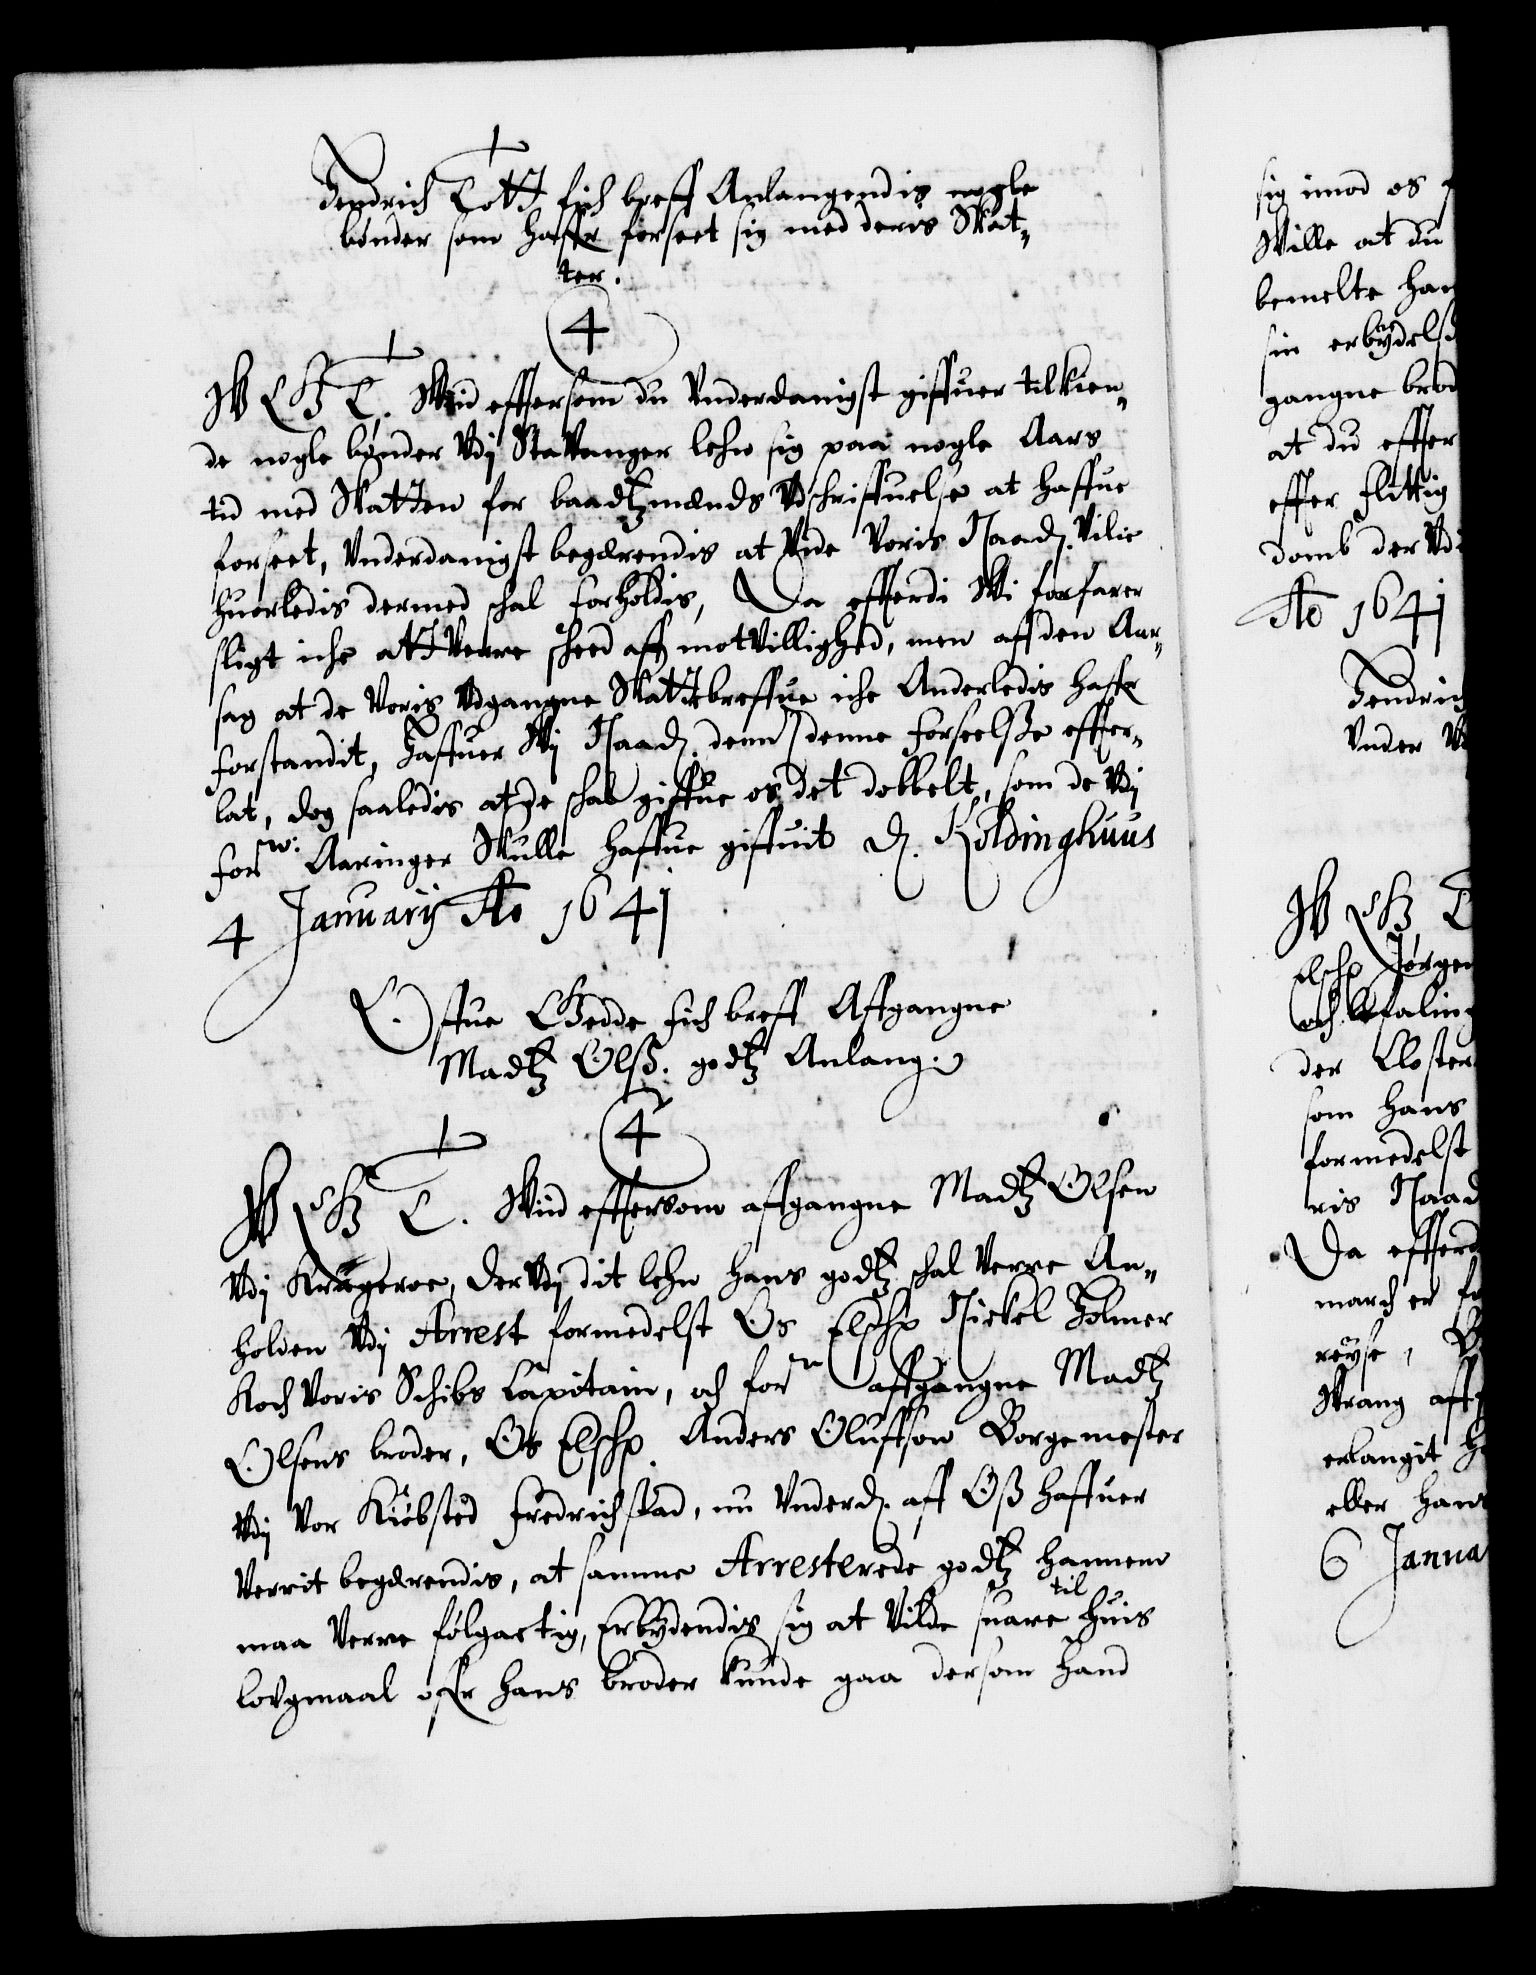 Hendrich Tott fich breff Anlangendis nogle
bønder som haffr forseet sig med deris Skat-
ter.
4
W G T. Wiid effersom du Vnderdanigst giffuer tilkien-
de nogle bønder Vdj Stavanger lehn sig paa nogle Aars
tid med Skatten for baadtzmænds Vdschriffuelse at haffue
forseet, Vnderdanigst begærendis at Vide Voris Naad. Vilie
huorledis dermed schal forholdis, Da efferdi Wi forfarer
sligt iche att Verre scheed aff motvillighed, men aff den Aar-
sag at de Voris Vdgangne Skattebreffue iche Anderledis haffr
forstandit, Haffuer Wj Naad. dem denne forseelsse effter-
lat, dog saaledis at de schal giffue os det dobbelt, som de Vdj
forne: Aaringer Skulle haffue giffuit D. Koldinghuus
4 Januarij Ao 1641
Offue Gedde fich breff Affgangne
Madtz Olss. godtz Anlang.
4
W G T. Wiid effersom affgangne Madtz Olsen
Vdj Kragerøe, der Vdj dit lehn hans godtz schal Verre An-
holden Vdj Arrest formedelst Os Elschp Nickel Holmer
Koch Voris Schibs Capitain, och forne affgangne Madtz
Olsens broder, Os Elschp. Anders Oluffson Borgemester
Vdj Vor Kiøbsted Fredrichstad, nu Vnderd. aff Oss haffuer
Verrit begærendis, at samme Arresterede godtz hannem
maa Verre følgactig, Erbydendis sig at Vilde suare til huis
lovgmaal offr hans broder kunde gaa dersom hand
sig imod os
Wille at du
bemelte han
sin erbydelse
gangne brod
at du effter
effter flittig
domb der Vd
Ao 1641
Hendrich
Vnder
W G T
elschp Jørgen
och befaling
der Closter
som hans
formedelst
ris Naad
Da efferd
march er
reyse,
Wrang aff
erlangit
eller hans
6 Janua